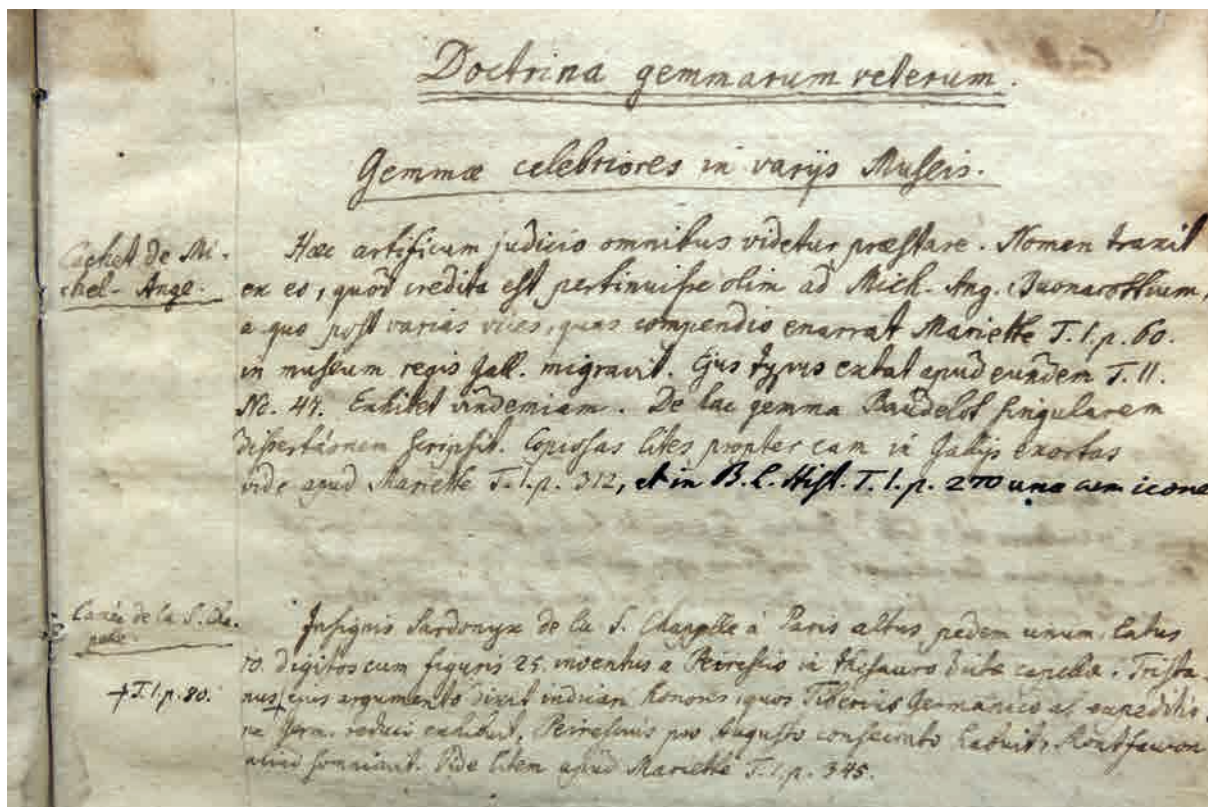 Doctrina gemmarum veterum.
Gemmæ celebriores in varijs Museis.
Cachet de Mi-
chel-Ange.
Hæc artificum judicio omnibus videtur præstare. Nomen traxit
ex eo, quod credita est pertinuisse olim ad Mich. Ang. Buonarottium,
a quo post varias vices, quas compendio enarrat Mariette T.I.p.60.
in museum regis Gall. migravit. Ejus typus extat apud eundem T.II.
No. 47. Exhibet vindemiam. De hac gemma Baudelot singularem
scripsit. Copiosas lites propter eam in Gallijs exortas
vide apud Mariette T.I.p. 312, et in B.L. Hist. T.I.p. 270 una cum icone
Camée de la S. Cha-
pelle.
Insignis Sardonyx de la S. Chappelle à Paris altus pedem unum, latus
10. digitos cum figuris 25. inventus a Peirescio in thesauro dictæ capellæ. Trista-
+T.I.p.80.
nus+ ejus argumento dixit indicari honores, quos Tiberius Germanico ab expeditio-
ne Germ. reduci exhibuit, Peirescius pro Augusto consecrato habuit, Montfaucon
aliud somniavit. Vide litem apud Mariette T.I.p. 345.